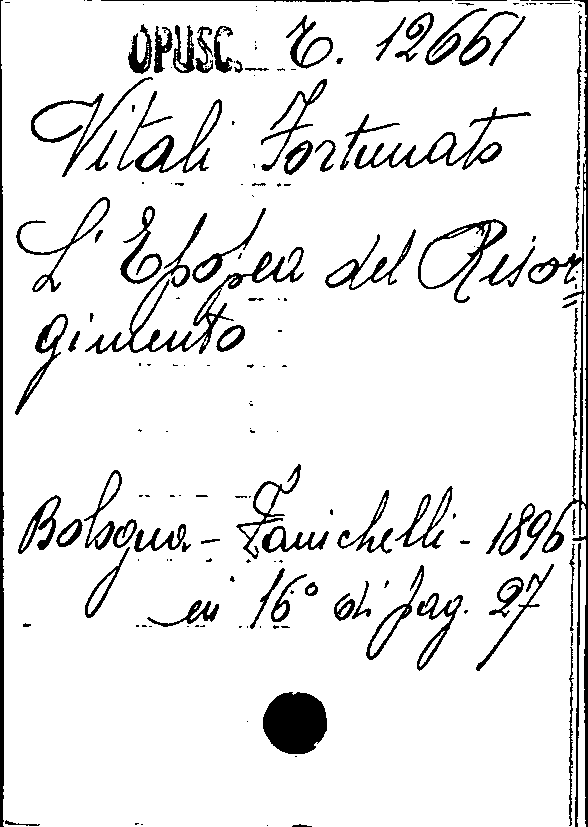 OPUSC. T. 12661
Vitali Fortunato
L' Epopea del Risor=
gimento
Bologna - Zanichelli - 1896
in 16° di pag. 27